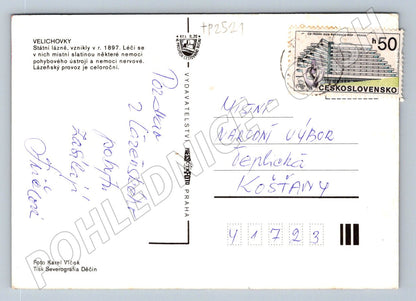 +P2521
VELICHOVKY
Státní lázně, vznikly v r. 1897. Léčí se
v nich místní slatinou některé nemoci
pohybového ústrojí a nemoci nervové.
Lázeňský provoz je celoroční.
Pozdrav
z Lázeňského
pobytu
zasílají
Foto Karel Vlček
Tisk Severografia Děčín
VYDAVATELSTVÍ
PRAHA
50
ČESKOSLOVENSKO
MÍSTNÍ
NÁRODNÍ VÝBOR
Teplická
KOŠŤANY
41723
POHLEDNICE